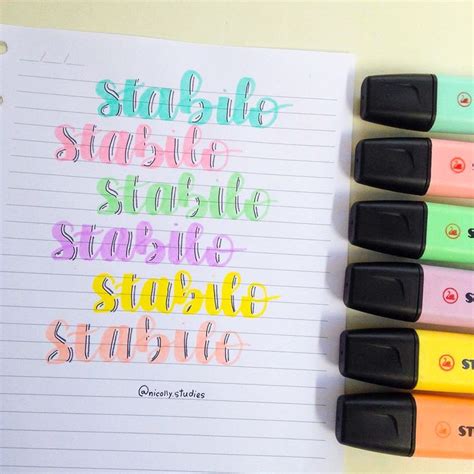 stabilo
stabilo
stabilo
stabilo
stabilo
stabilo
@nicolly.studies
ST
ST
ST
ST
ST